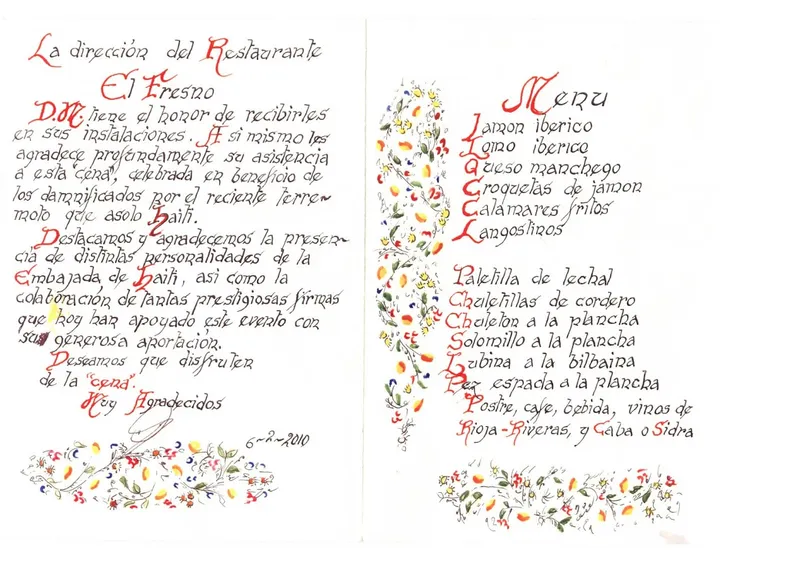 La dirección del Restaurante
El Fresno
D.M. tiene el honor de recibirles
en sus instalaciones. Asi mismo les
agradece profundamente su asistencia
a esta "cena", celebrada en beneficio de
los damnificados por el reciente terre~
moto que asolo Haiti.
Destacamos y agradecemos la presen~
cia de distintas personalidades de la
Embajada de Haiti, asi como la
colaboración de tantas prestigiosas firmas
que hoy han apoyado este evento con
su generosa aportación.
Deseamos que disfruten
de la "cena".
Muy Agradecidos
6~2~2010
Menu
Jamon iberico
Lomo iberico
Queso manchego
Croquetas de jamon
Calamares fritos
Langostinos
Paletilla de lechal
Chuletillas de cordero
Chuleton a la plancha
Solomillo a la plancha
Lubina a la bilbaina
Pez espada a la plancha
Postre, cafe, bebida, vinos de
Rioja-Riveras, y Caba o Sidra